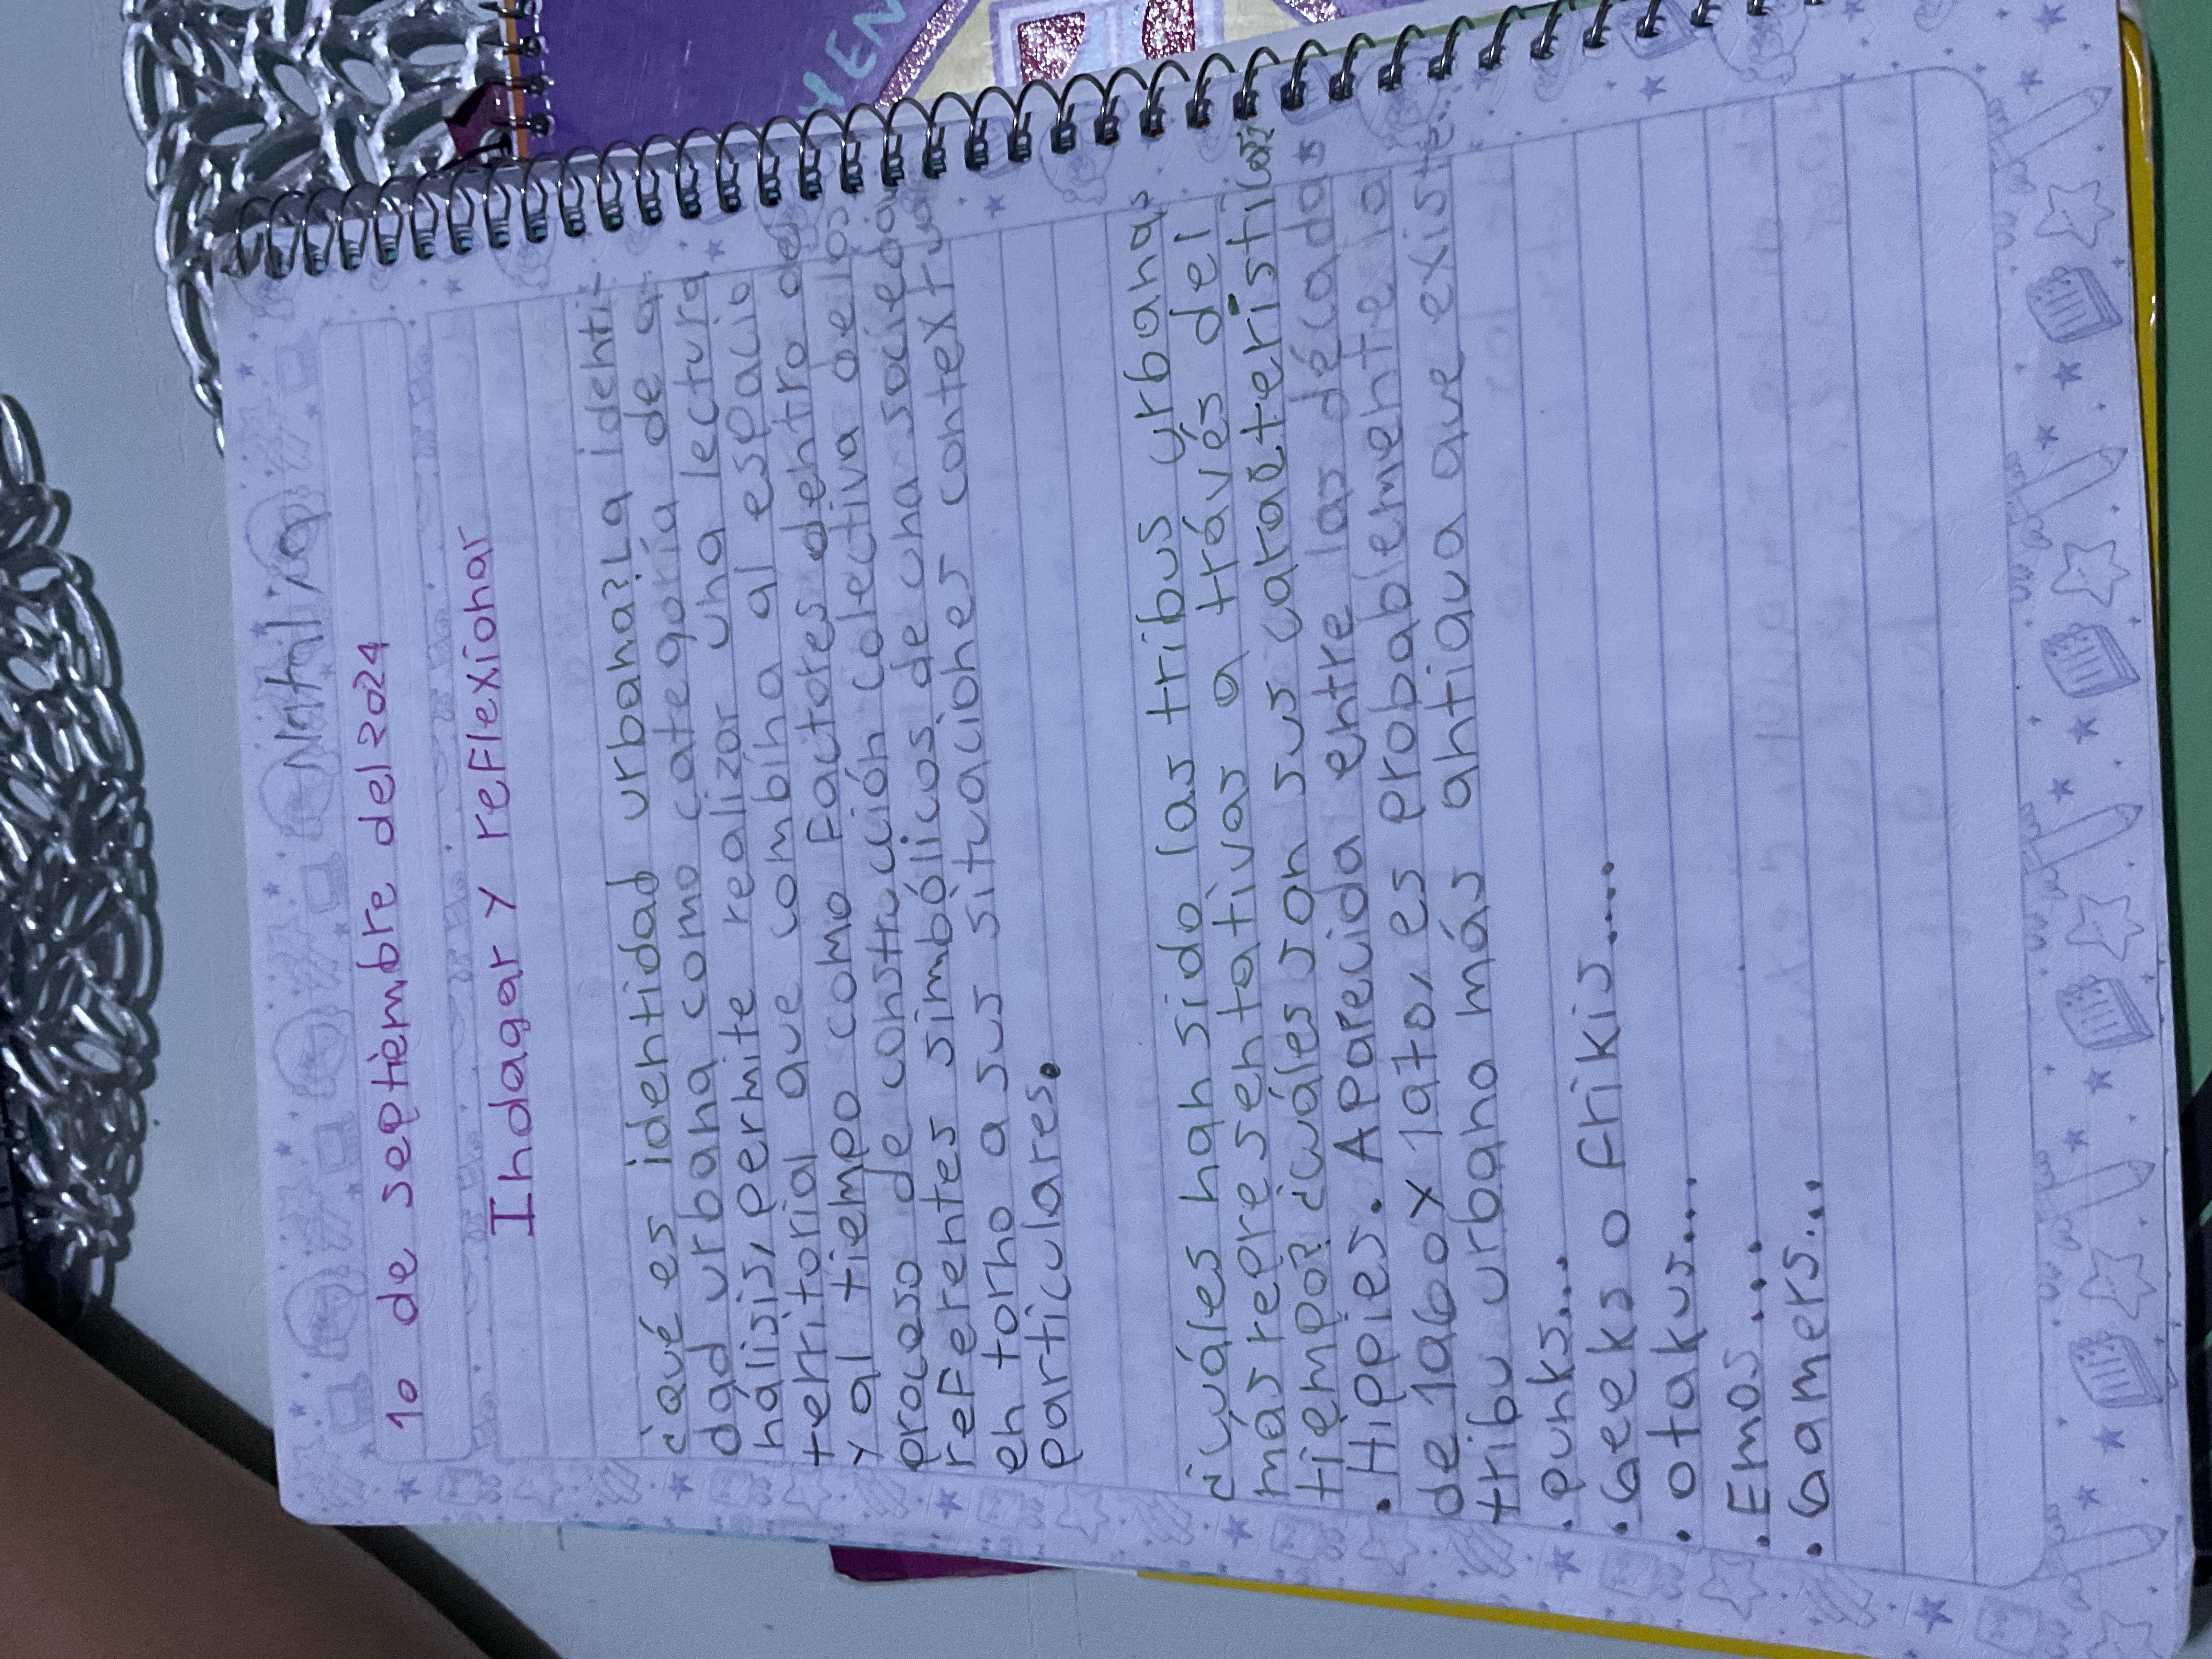 Nathalya
10 de septiembre del 2024
Indagar y reflexionar
¿qué es identidad urbana? La identi-
dad urbana como categoría de a-
nálisis, permite realizar una lectura
territorial que combina al espacio
y al tiempo como factores dentro del
proceso de construcción colectiva de los
referentes simbólicos de una sociedad
en torno a sus situaciones contextuales
particulares.
¿cuáles han sido las tribus urbanas
más representativas a través del
tiempo? ¿cuáles son sus características?
• Hippies. Aparecida entre las décadas
de 1960 y 1970, es probablemente la
tribu urbana más antigua que existe...
• punks...
• Geeks o frikis....
• otakus...
• Emos...
• Gamers...
HEN